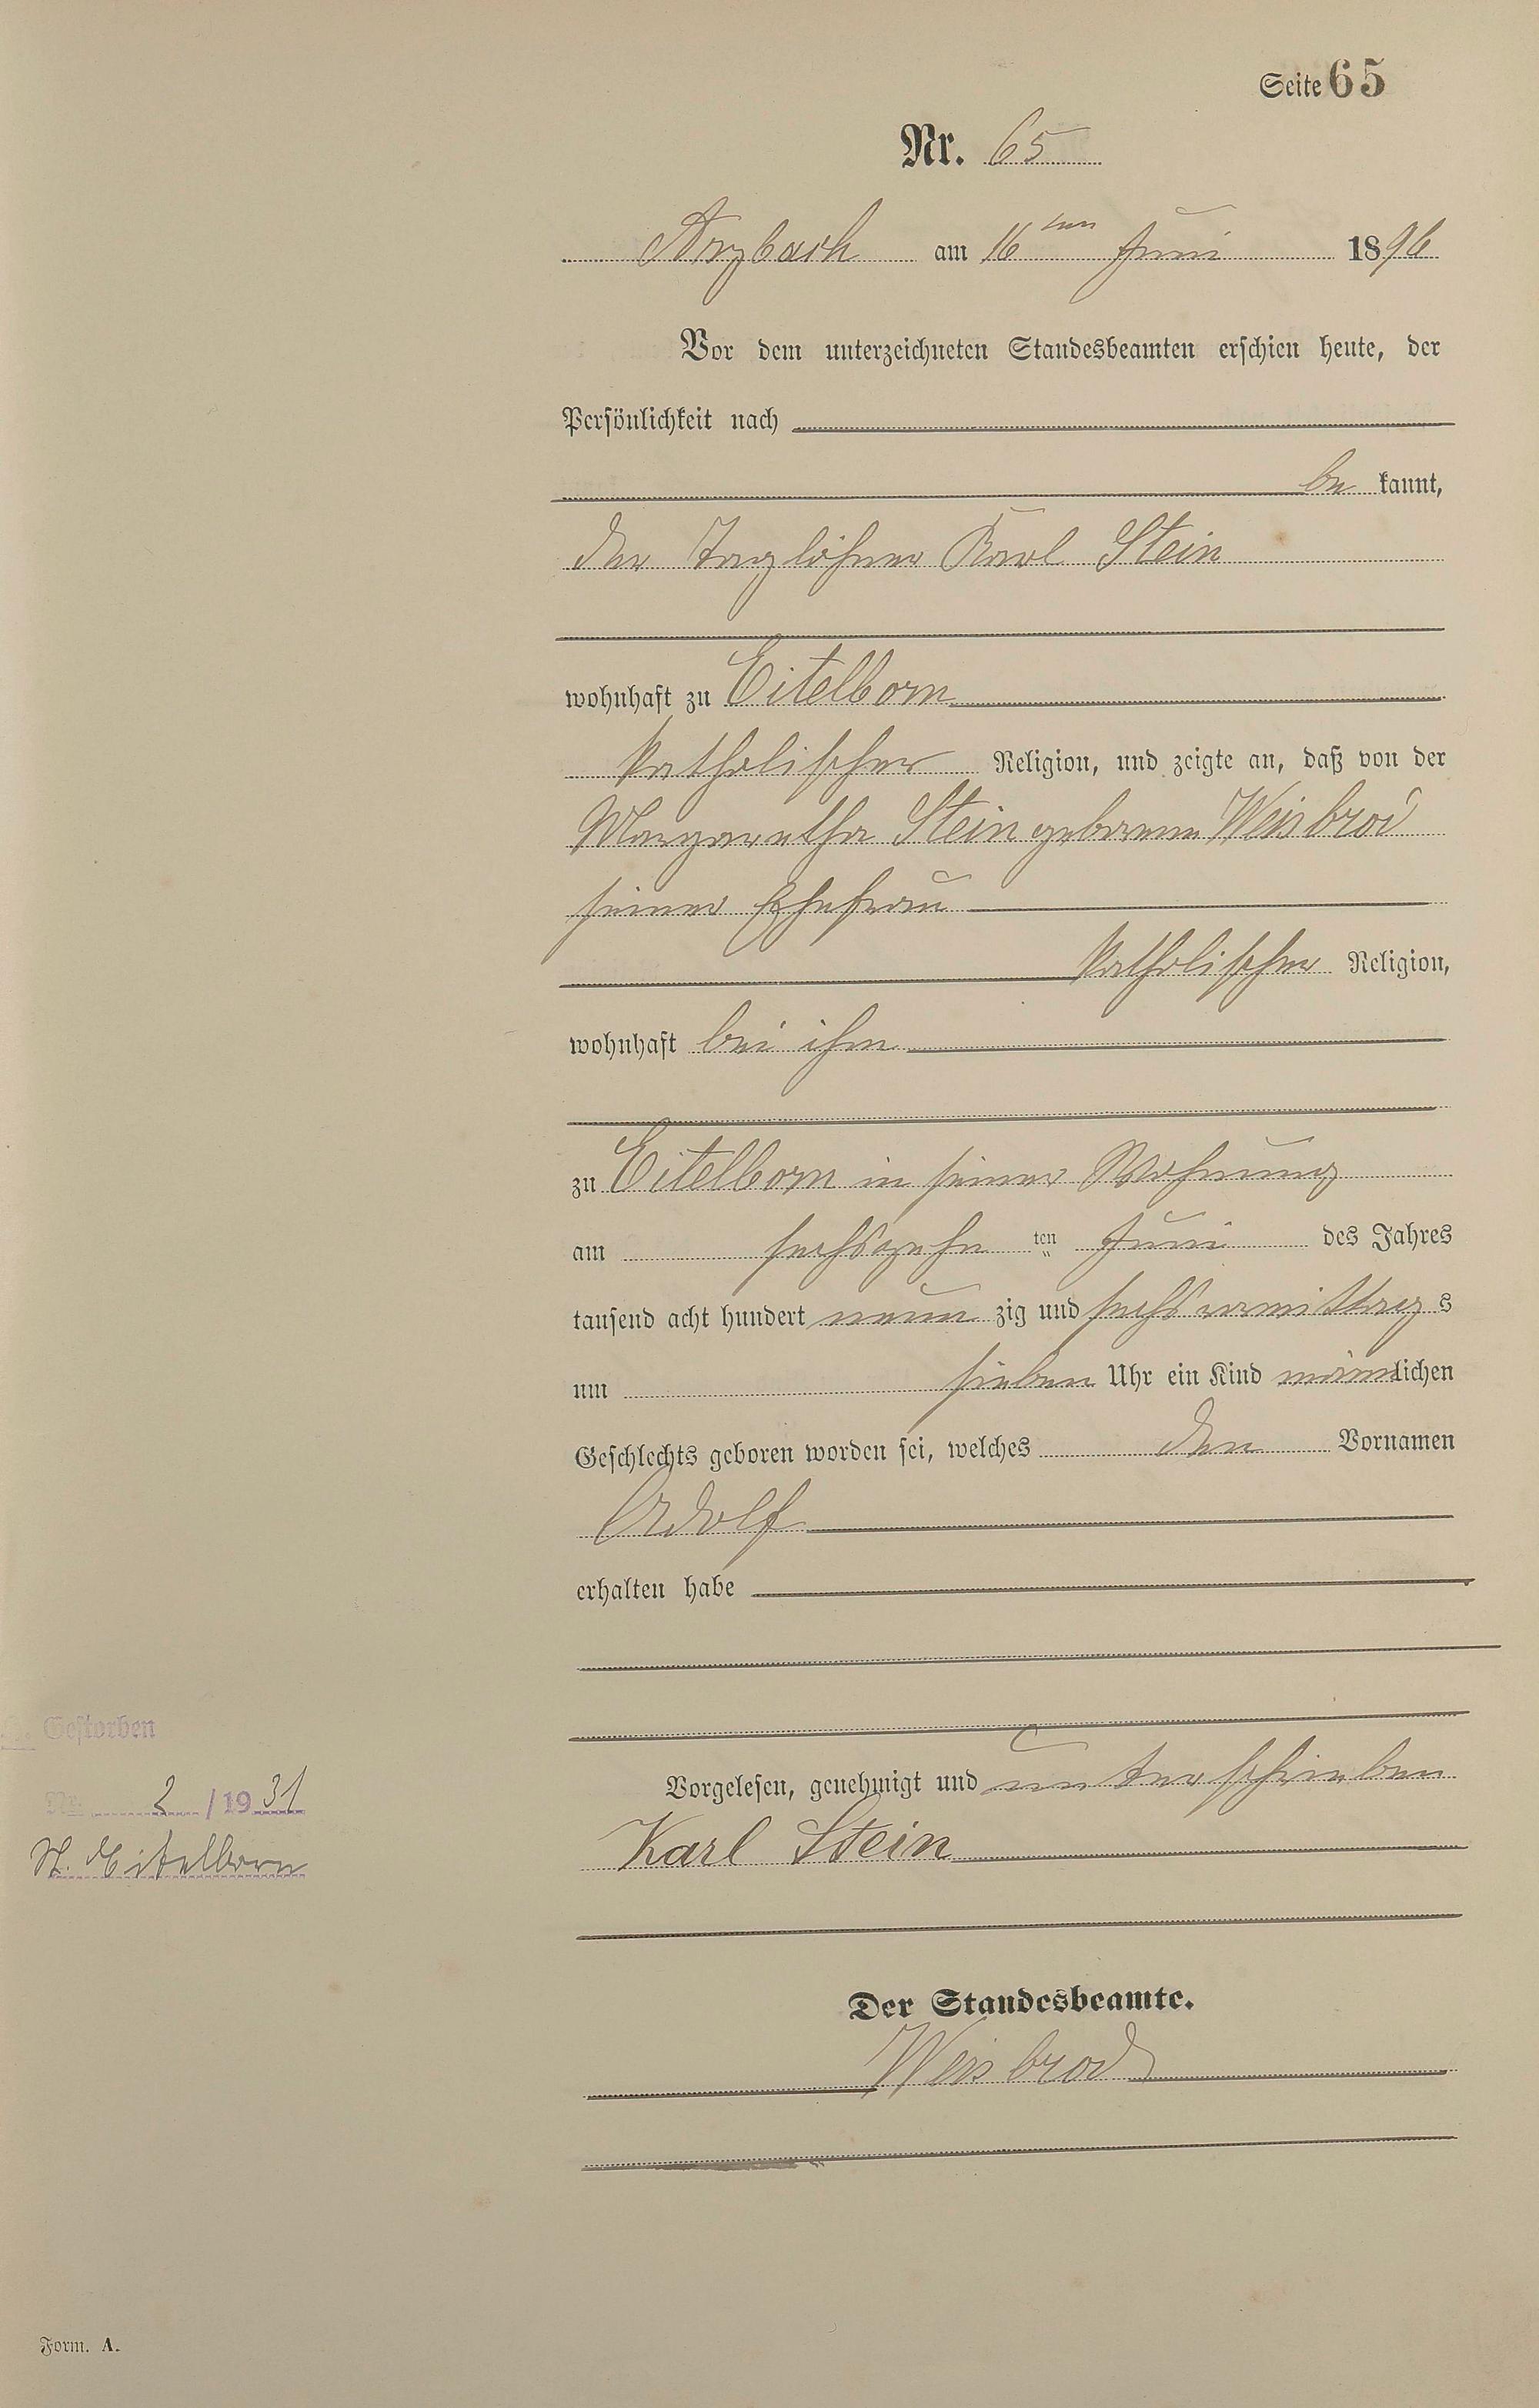 Seite 65
Nr. 65
Arzbach am 16ten Juni 1896
Vor dem unterzeichneten Standesbeamten erschien heute, der
Persönlichkeit nach
be kannt,
der Taglöhner Karl Stein
wohnhaft zu Eitelborn
katholischer Religion, und zeigte an, daß von der
Margaretha Stein geborene Weisbrod
seiner Ehefrau
katholischer Religion,
wohnhaft bei ihm
zu Eitelborn in seiner Wohnung
am sechszehn ten Juni des Jahres
tausend acht hundert neun zig und sechs vormittag s
um sieben Uhr ein Kind männlichen
Geschlechts geboren worden sei, welches den Vornamen
Adolf
erhalten habe
Vorgelesen, genehmigt und unterschrieben
Karl Stein
Der Standesbeamte.
Weisbrod
Gestorben
Nr. 2 / 1931
St. Eitelborn
Form. A.